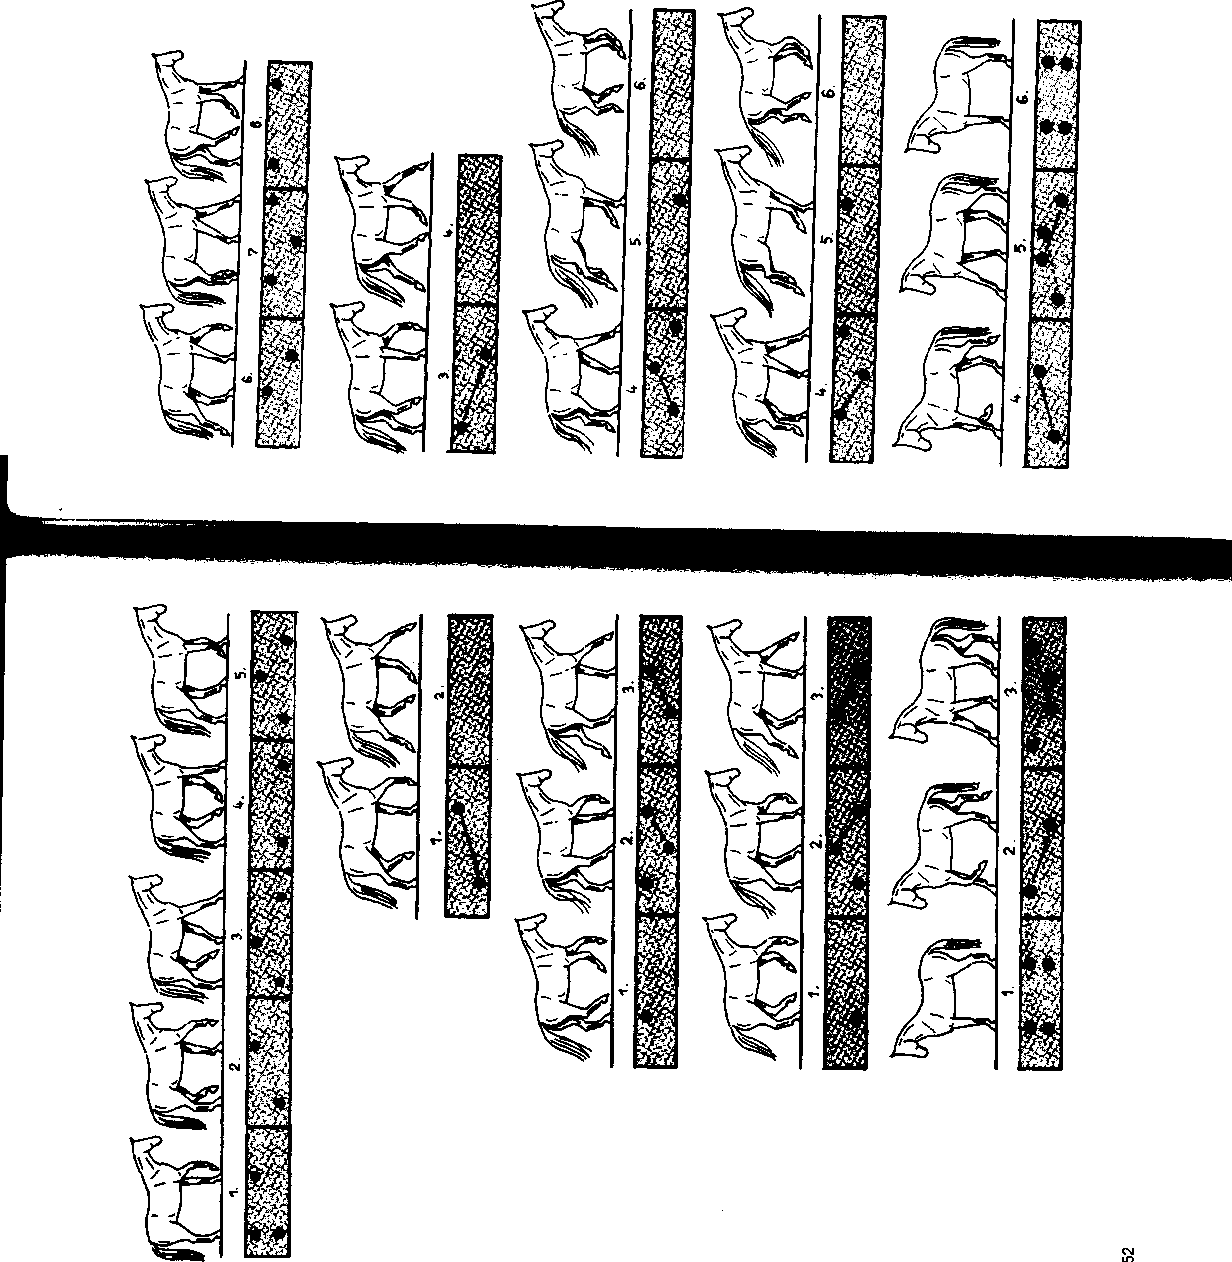 1. 2. 3. 4. 5. 6. 7 8.
1. 2. 3 4.
1. 2. 3. 4 5. 6.
1. 2. 3. 4. 5. 6.
1. 2. 3. 4. 5. 6.
52